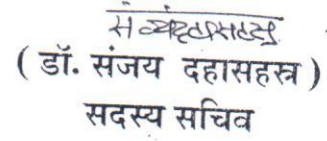 ( डॉ. संजय दहासहस्र )
सदस्य सचिव